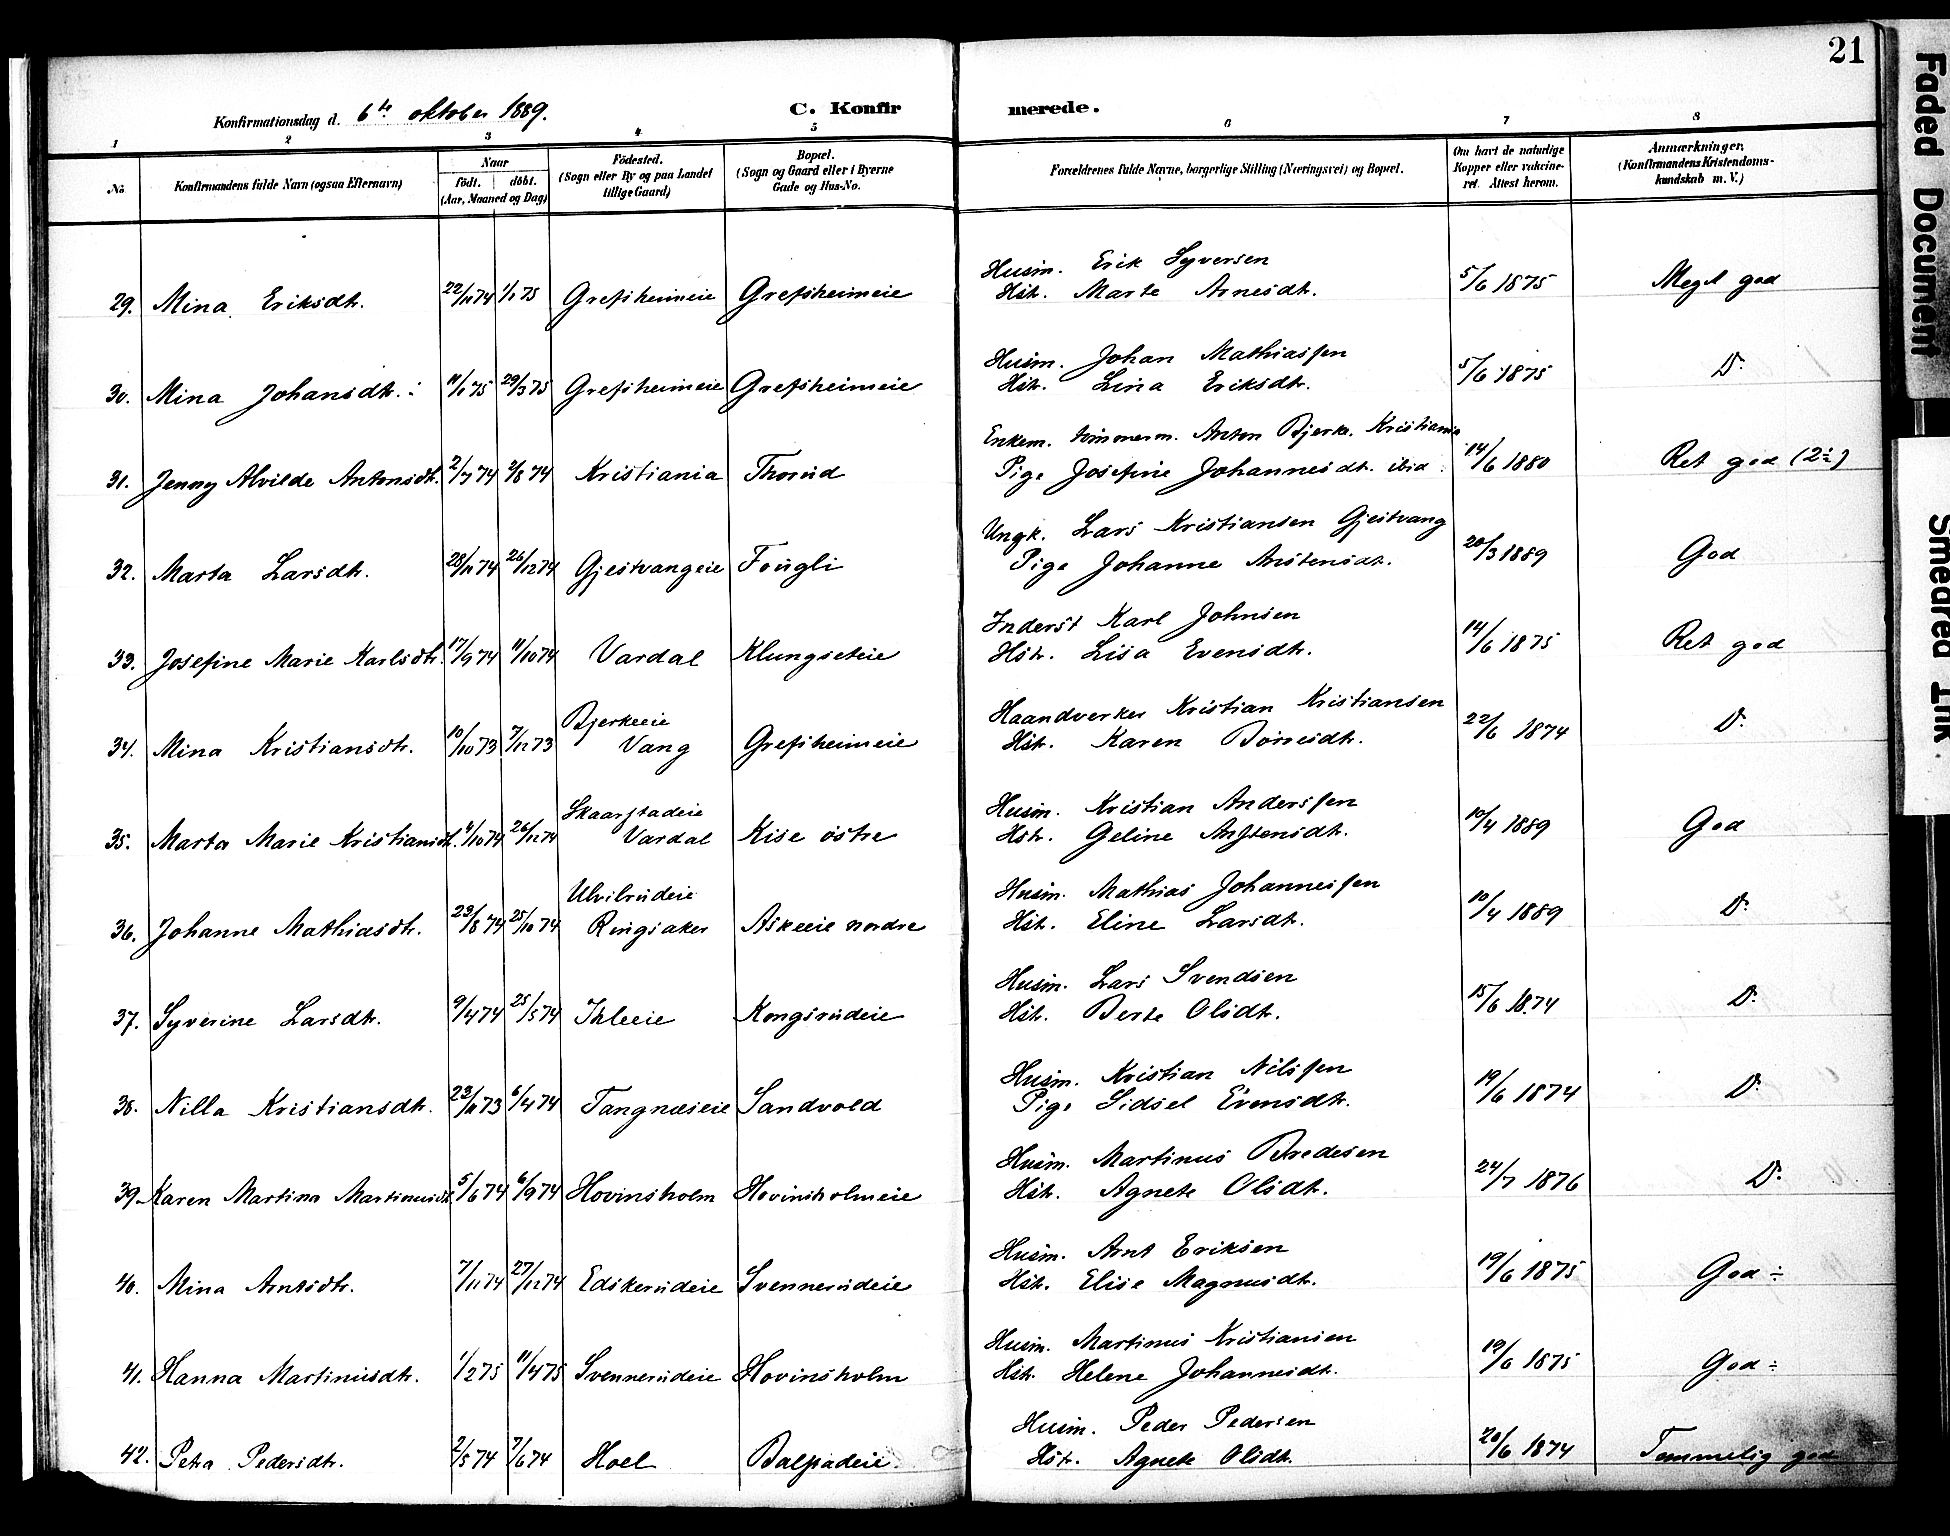 21
Konfirmationsdag d. 6te oktober 1889.
C. Konfirmerede.
1 2 3 4 5 6 7 8
No
Konfirmandens fulde Navn (ogsaa Efternavn)
Naar
födt. döbt.
(Aar, Maaned og Dag)
Födested.
(Sogn eller By og paa Landet
tillige Gaard)
Bopæl.
(Sogn og Gaard eller i Byerne
Gade og Hus-No.
Forældrenes fulde Navne, borgerlige Stilling (Næringsvei) og Bopæl.
Om havt de naturlige
Kopper eller vakcine-
ret. Attest herom.
Anmærkninger.
(Konfirmandens Kristendoms-
kundskab m. V.)
Husm. Erik Syversen
29. Mina Eriksdtr. 22/11 74 1/1 75 Grefsheimeie Grefsheimeie Hstr. Marte Arnesdtr. 5/6 1875 Meget god
Husm. Johan Mathiassen
30. Mina Johansdtr. 11/1 75 29/3 75 Grefsheimeie Grefsheimeie Hstr. Lina Eriksdtr. 5/6 1875 Do
Enkem. tømmerm. Anton Bjerke. Kristiania
31. Jenny Alvilde Antonsdtr. 2/7 74 2/8 74 Kristiania Thorud Pige Josefine Johannesdtr. ibid 14/6 1880 Ret god (2÷)
Ungk. Lars Kristiansen Gjestvang
32. Marta Larsdtr. 28/11 74 26/12 74 Gjestvangeie Fougli Pige Johanne Anstensdtr. 20/3 1889 God
Inderst Karl Johnsen
33. Josefine Marie Karlsdtr. 17/9 74 11/10 74 Vardal Klungseteie Hstr. Lisa Evensdtr. 14/6 1875 Ret god
Bjerkeeie Haandverker Kristian Kristiansen
34. Mina Kristiansdtr. 10/10 73 7/12 73 Vang Grefsheimeie Hstr. Karen Børresdtr. 22/6 1874 Do
Skaarstadeie Husm. Kristian Anderssen
35. Marta Marie Kristiansdtr. 4/10 74 26/12 74 Vardal Kise østre Hstr. Geline Anstensdtr. 10/4 1889 God
Ulvibrudeie Husm. Mathias Johannessen
36. Johanne Mathiasdtr. 23/8 74 25/10 74 Ringsaker Askeeie nordre Hstr. Eline Larsdtr. 10/4 1889 Do
Husm. Lars Svendsen
37. Syverine Larsdtr. 9/4 74 25/5 74 Ihleeie Kongsrudeie Hstr. Berte Olsdtr. 15/6 1874 Do
Husm. Kristian Nilssen
38. Nilla Kristiansdtr. 23/11 73 6/4 74 Tangnæseie Sandvold Pige Sidsel Evensdtr. 19/6 1874 Do
Husm. Martinus Bredesen
39. Karen Martina Martinusdtr. 5/6 74 6/9 74 Hovinsholm Hovinsholmeie Hstr. Agnete Olsdtr. 24/7 1876 Do
Husm. Arnt Eriksen
40. Mina Arntsdtr. 7/11 74 27/12 74 Edskerudeie Svennerudeie Hstr. Elise Magnusdtr. 19/6 1875 God ÷
Husm. Martinus Kristiansen
41. Hanna Martinusdtr. 1/2 75 11/4 75 Svennerudeie Hovinsholm Hstr. Helene Johannesdtr. 19/6 1875 God ÷
Husm. Peder Pedersen
42. Petra Pedersdtr. 2/5 74 7/6 74 Hoel Balpadeie Hstr. Agnete Olsdtr. 20/6 1874 Temmelig god
Faded Document
Smeared Ink